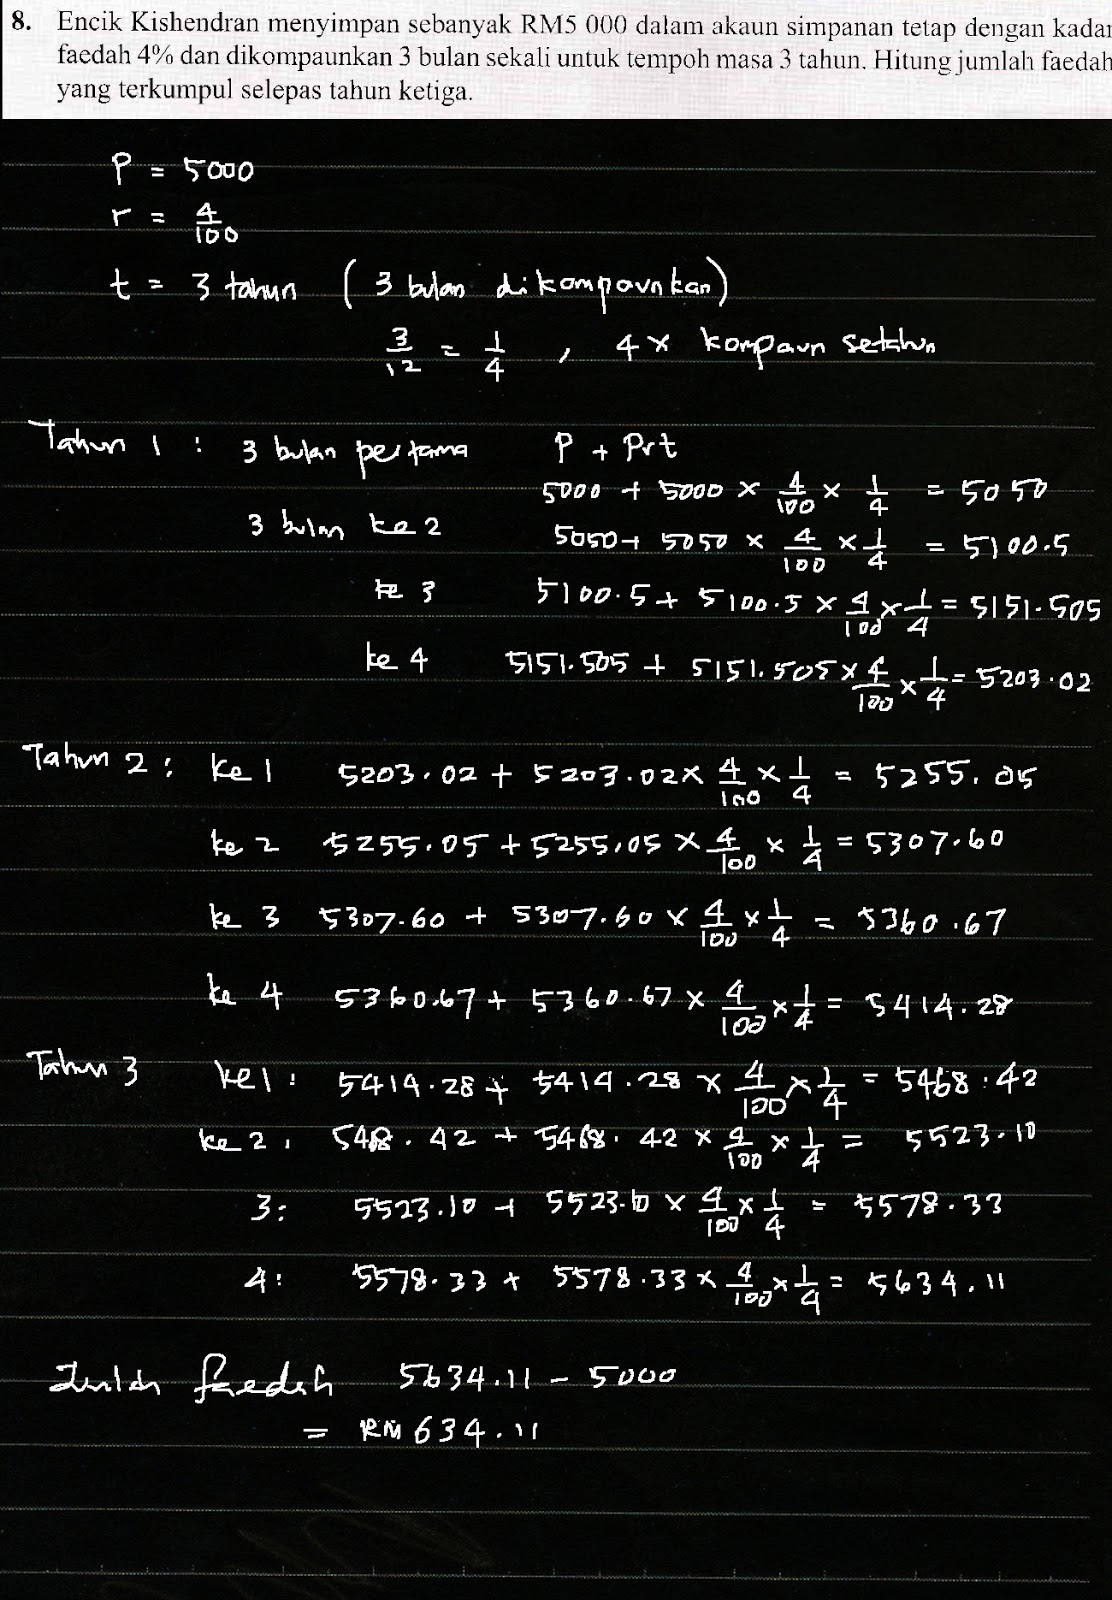 8. Encik Kishendran menyimpan sebanyak RM5 000 dalam akaun simpanan tetap dengan kadar
faedah 4% dan dikompaunkan 3 bulan sekali untuk tempoh masa 3 tahun. Hitung jumlah faedah
yang terkumpul selepas tahun ketiga.
P = 5000
r = 4/100
t = 3 tahun (3 bulan dikompaunkan)
3/12 = 1/4 , 4 x kompaun setahun
Tahun 1 : 3 bulan pertama P + Prt
5000 + 5000 x 4/100 x 1/4 = 5050
3 bulan ke 2 5050 + 5050 x 4/100 x 1/4 = 5100.5
ke 3 5100.5 + 5100.5 x 4/100 x 1/4 = 5151.505
ke 4 5151.505 + 5151.505 x 4/100 x 1/4 = 5203.02
Tahun 2 : ke 1 5203.02 + 5203.02 x 4/100 x 1/4 = 5255.05
ke 2 5255.05 + 5255.05 x 4/100 x 1/4 = 5307.60
ke 3 5307.60 + 5307.60 x 4/100 x 1/4 = 5360.67
ke 4 5360.67 + 5360.67 x 4/100 x 1/4 = 5414.28
Tahun 3 ke 1 : 5414.28 + 5414.28 x 4/100 x 1/4 = 5468.42
ke 2 : 5468.42 + 5468.42 x 4/100 x 1/4 = 5523.10
3 : 5523.10 + 5523.10 x 4/100 x 1/4 = 5578.33
4 : 5578.33 + 5578.33 x 4/100 x 1/4 = 5634.11
Jumlah faedah 5634.11 - 5000
= RM 634.11